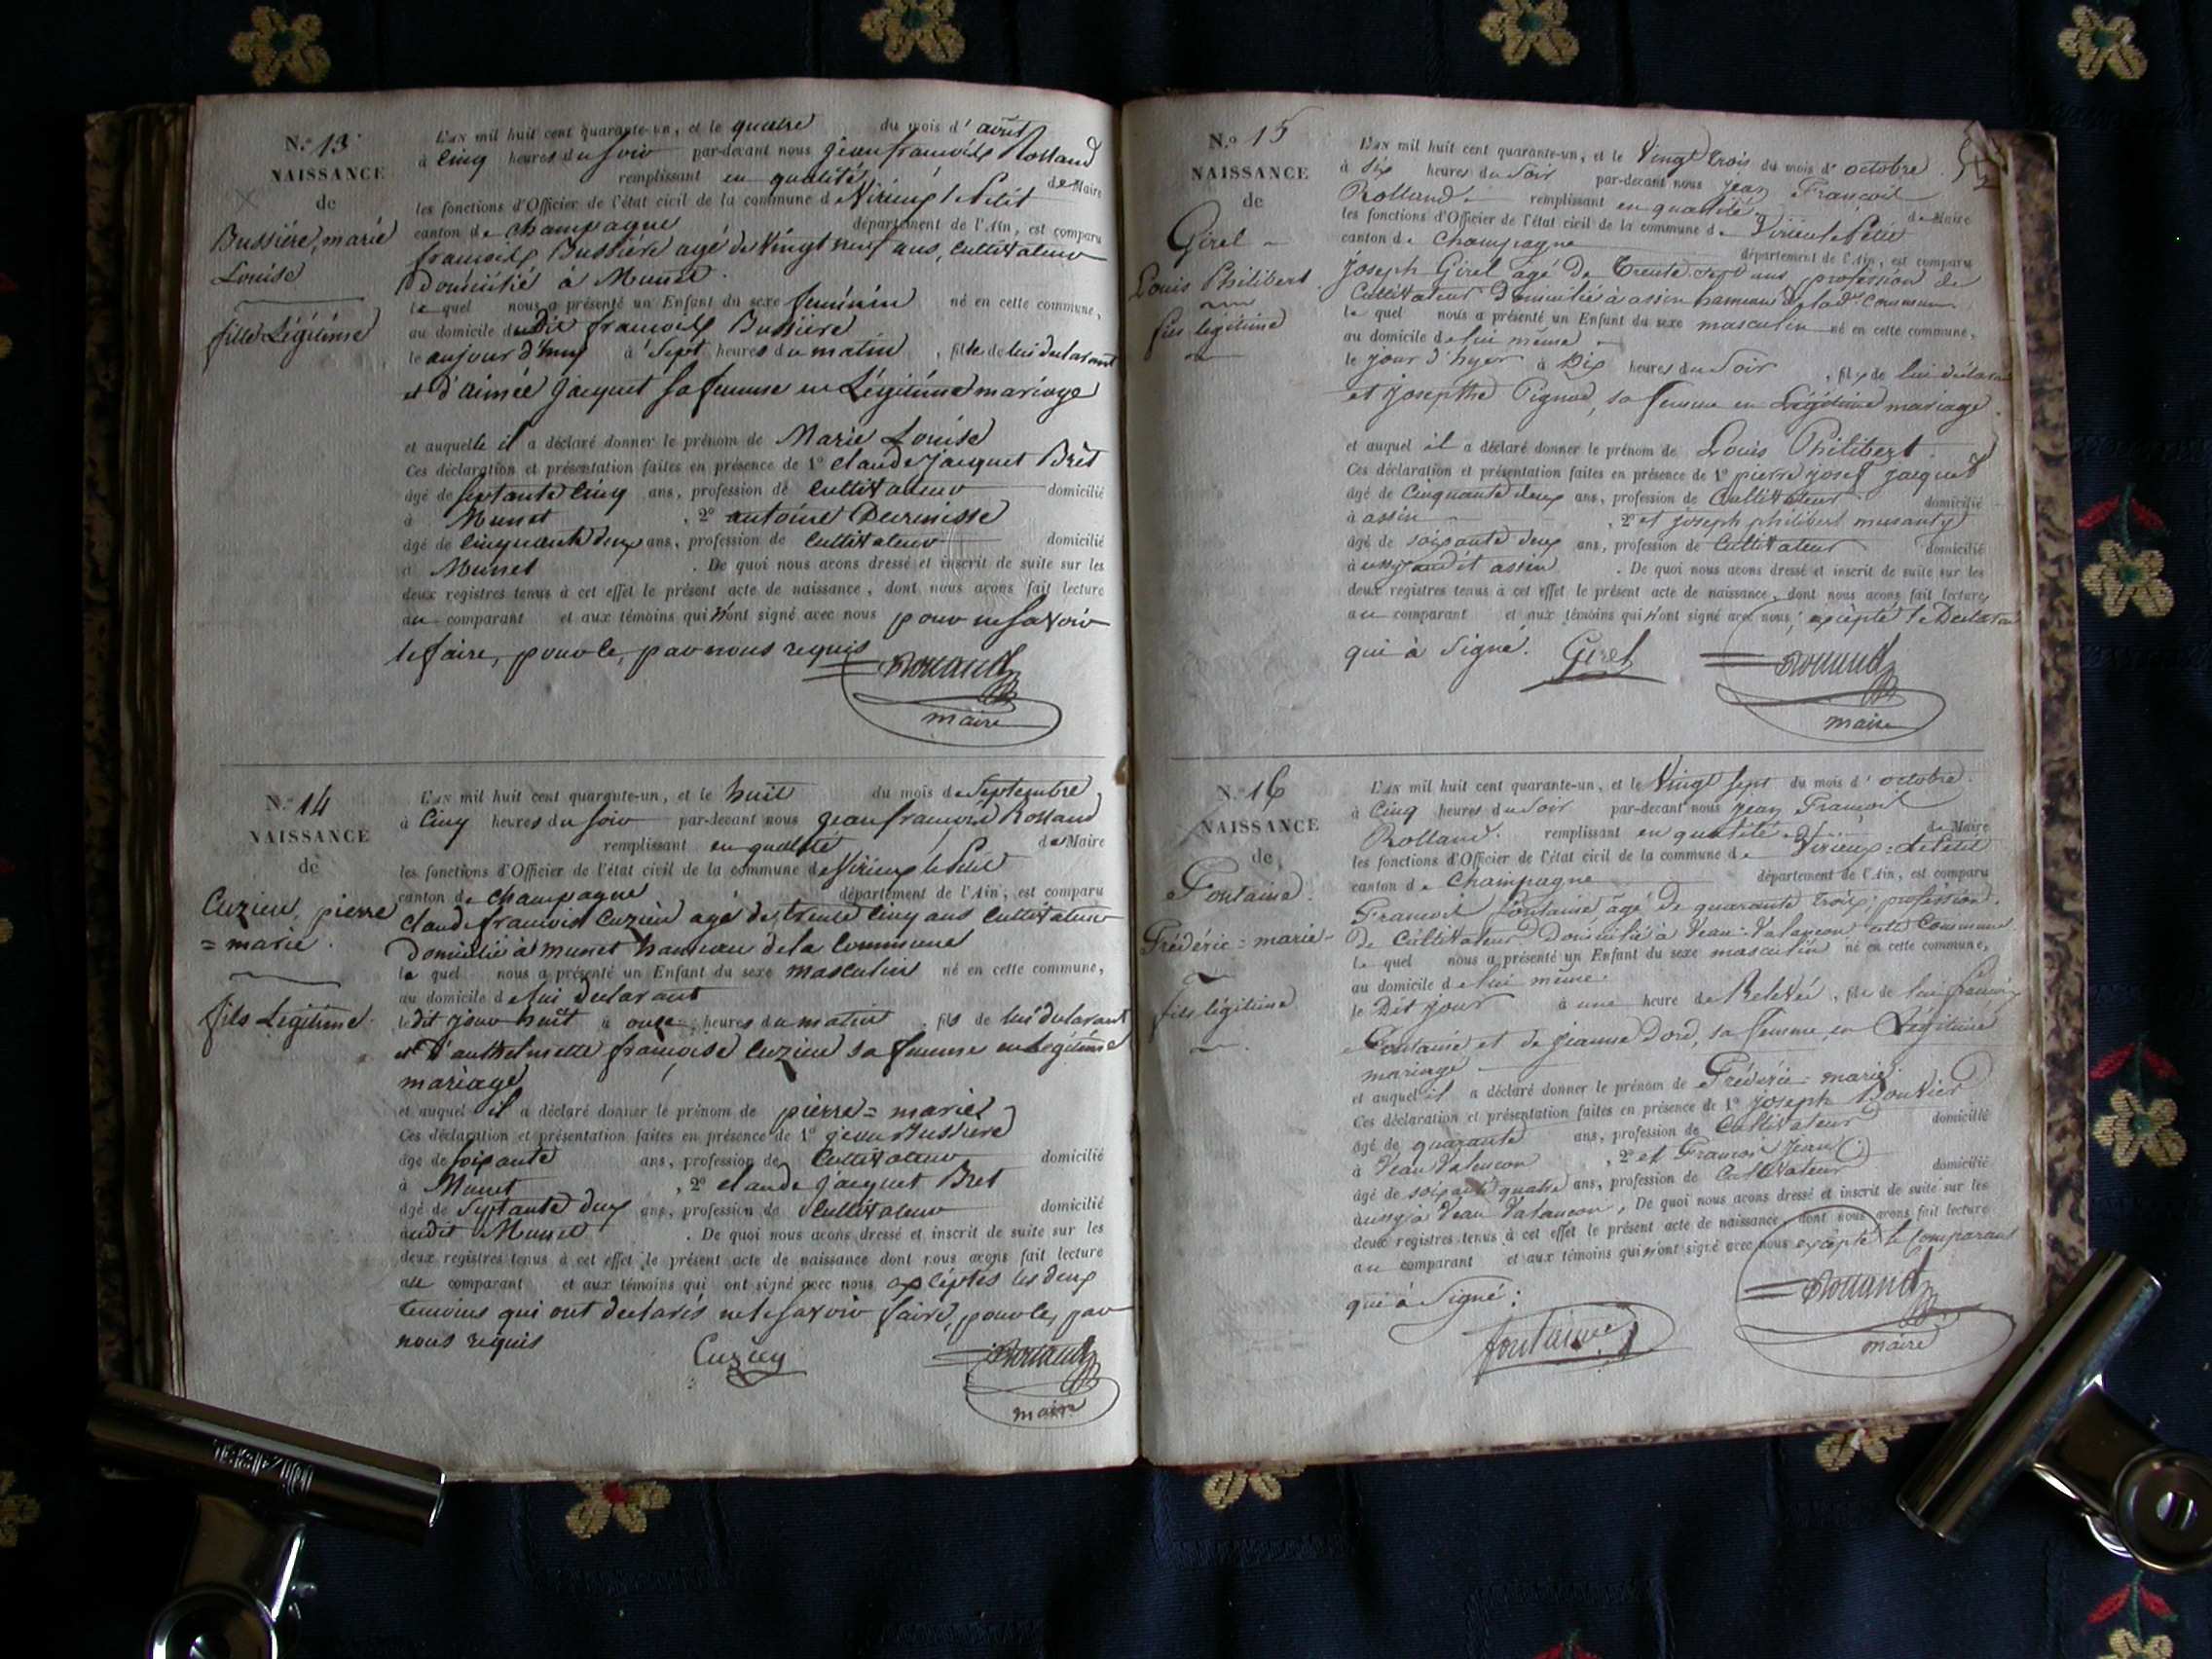 N.º 13
NAISSANCE
de
Bussiére, marie
Louise
fille Légitime
L'AN mil huit cent quarante-un, et le quatre du mois d'août
à cinq heures du soir par-devant nous jean françois Rolland
remplissant en qualité de Maire
les fonctions d'Officier de l'état civil de la commune de Virieux le Petit
canton de champagne département de l'Ain, est comparu
françois Bussiére agé de vingt neuf ans, cultivateur
domicilié à Munet.
le quel nous a présenté un Enfant du sexe feminin né en cette commune,
au domicile dudit françois Bussiére
le aujour d'huy à sept heures du matin, fille de lui declarant
et d'aimée jacquet sa femme en Légitime mariage
et auquelle il a déclaré donner le prénom de Marie Louise
Ces déclaration et présentation faites en présence de 1º claude jacquet Brêt
âgé de septante cinq ans, profession de cultivateur domicilié
à Munet, 2º antoine
âgé de cinquante deux ans, profession de cultivateur domicilié
à Munet. De quoi nous avons dressé et inscrit de suite sur les
deux registres tenus à cet effet le présent acte de naissance, dont nous avons fait lecture
au comparant et aux témoins qui n'ont signé avec nous pour ne savoir
le faire, pour ce, par nous requis
Rolland
maire
N.º 14
NAISSANCE
de
Cuzieu, pierre
= marie.
fils Légitime.
L'AN mil huit cent quarante-un, et le huit du mois de Septembre
à cinq heures du soir par-devant nous jean françois Rolland
remplissant en qualité de Maire
les fonctions d'Officier de l'état civil de la commune de Virieux le Petit
canton de champagne département de l'Ain, est comparu
claude françois Cuzieu agé de trente cinq ans cultivateur
Domicilié à munet hameau de la commune
le quel nous a présenté un Enfant du sexe masculin né en cette commune,
au domicile de lui declarant
le dit jour huit à onze heures du matin, fils de lui declarant
et d'anthelmette françoise Cuzieu sa femme en Legitime
mariage
et auquel il a déclaré donner le prénom de pierre = marie
Ces déclaration et présentation faites en présence de 1º jean Bussiere
âgé de soixante ans, profession de cultivateur domicilié
à Munet, 2º claude jacquet Bret
âgé de septante deux ans, profession de cultivateur domicilié
audit Munet. De quoi nous avons dressé et inscrit de suite sur les
deux registres tenus à cet effet le présent acte de naissance dont nous avons fait lecture
au comparant et aux témoins qui ont signé avec nous exceptés les deux
temoins qui ont declarés ne le savoir faire, pour ce, par
nous requis
Cuzieu
Rolland
maire
N.º 15
NAISSANCE
de
Girel
Louis Philibert
fils légitime
L'AN mil huit cent quarante-un, et le vingt trois du mois d'octobre
à six heures du soir par-devant nous jean François
Rolland remplissant en qualité de Maire
les fonctions d'Officier de l'état civil de la commune de Virieu le Petit
canton de Champagne département de l'Ain, est comparu
Joseph Girel agé de trente sept ans profession de
cultivateur domicilié à assin hameau de lad. commune
le quel nous a présenté un Enfant du sexe masculin né en cette commune,
au domicile de lui même
le jour d'hyer à Dix heures du soir, fils de lui déclarant
et josepthe Pignod, sa femme en Légitime mariage.
et auquel il a déclaré donner le prénom de Louis Philibert
Ces déclaration et présentation faites en présence de 1º pierre josef jacquet
âgé de cinquante deux ans, profession de cultivateur domicilié
à assin, 2º et joseph philibert
âgé de soixante deux ans, profession de cultivateur domicilié
à ussy audit assin. De quoi nous avons dressé et inscrit de suite sur les
deux registres tenus à cet effet le présent acte de naissance, dont nous avons fait lecture
au comparant et aux témoins qui n'ont signé avec nous; excepté le Declarant
qui à signé. Girel
Rolland
maire
N.º 16
NAISSANCE
de
Fontaine
Frédéric = marie
fils légitime
L'AN mil huit cent quarante-un, et le Vingt sept du mois d'octobre
à cinq heures du soir par-devant nous jean François
Rolland. remplissant en qualité de Maire
les fonctions d'Officier de l'état civil de la commune de Virieux = le Petit
canton de Champagne département de l'Ain, est comparu
François fontaine agé de quarante trois; profession
de cultivateur Domicilié à Veau-Valançon commune
le quel nous a présenté un Enfant du sexe masculin né en cette commune,
au domicile de lui même.
le Dit jour à une heure de Relevée, fils de lui françois
Fontaine et de jeanne Dord, sa femme, en Légitime
mariage
et auquel il a déclaré donner le prénom de Fréderic = marie
Ces déclaration et présentation faites en présence de 1º joseph Bouvier
âgé de quarante ans, profession de cultivateur domicilié
à Veau Valencon, 2º et François jean
âgé de soixante quatre ans, profession de cultivateur domicilié
aussy à Veau Valancon, De quoi nous avons dressé et inscrit de suite sur les
deux registres tenus à cet effet le présent acte de naissance, dont nous avons fait lecture
au comparant et aux témoins qui n'ont signé avec nous excepté le comparant
qui à signé:
fontaine
Rolland
maire